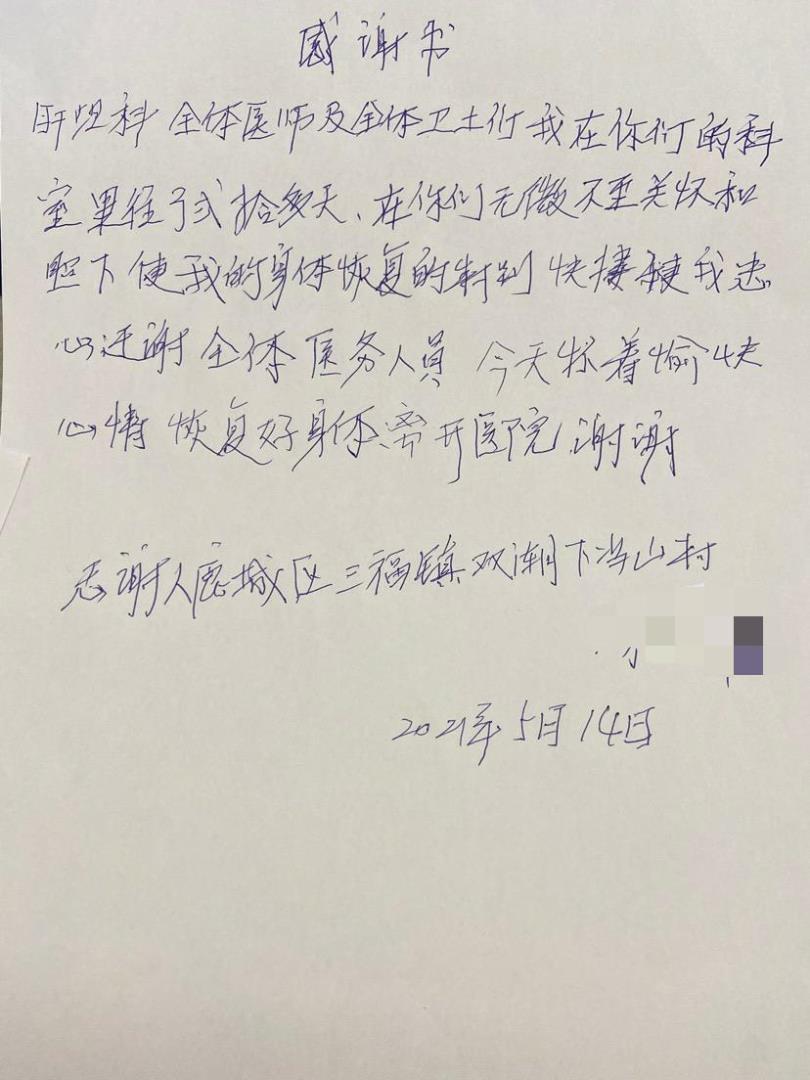 感谢书
肝胆科 全体医师及全体卫士们我在你们的科
室里住了弍拾多天、在你们无微不至关怀和
照下使我的身体恢复的特别快 我忠
心还谢全体医务人员 今天怀着愉快
心情恢复好身体、离开医院 谢谢
谢人鹿城区三福镇双潮下当山村
2021年5月14日